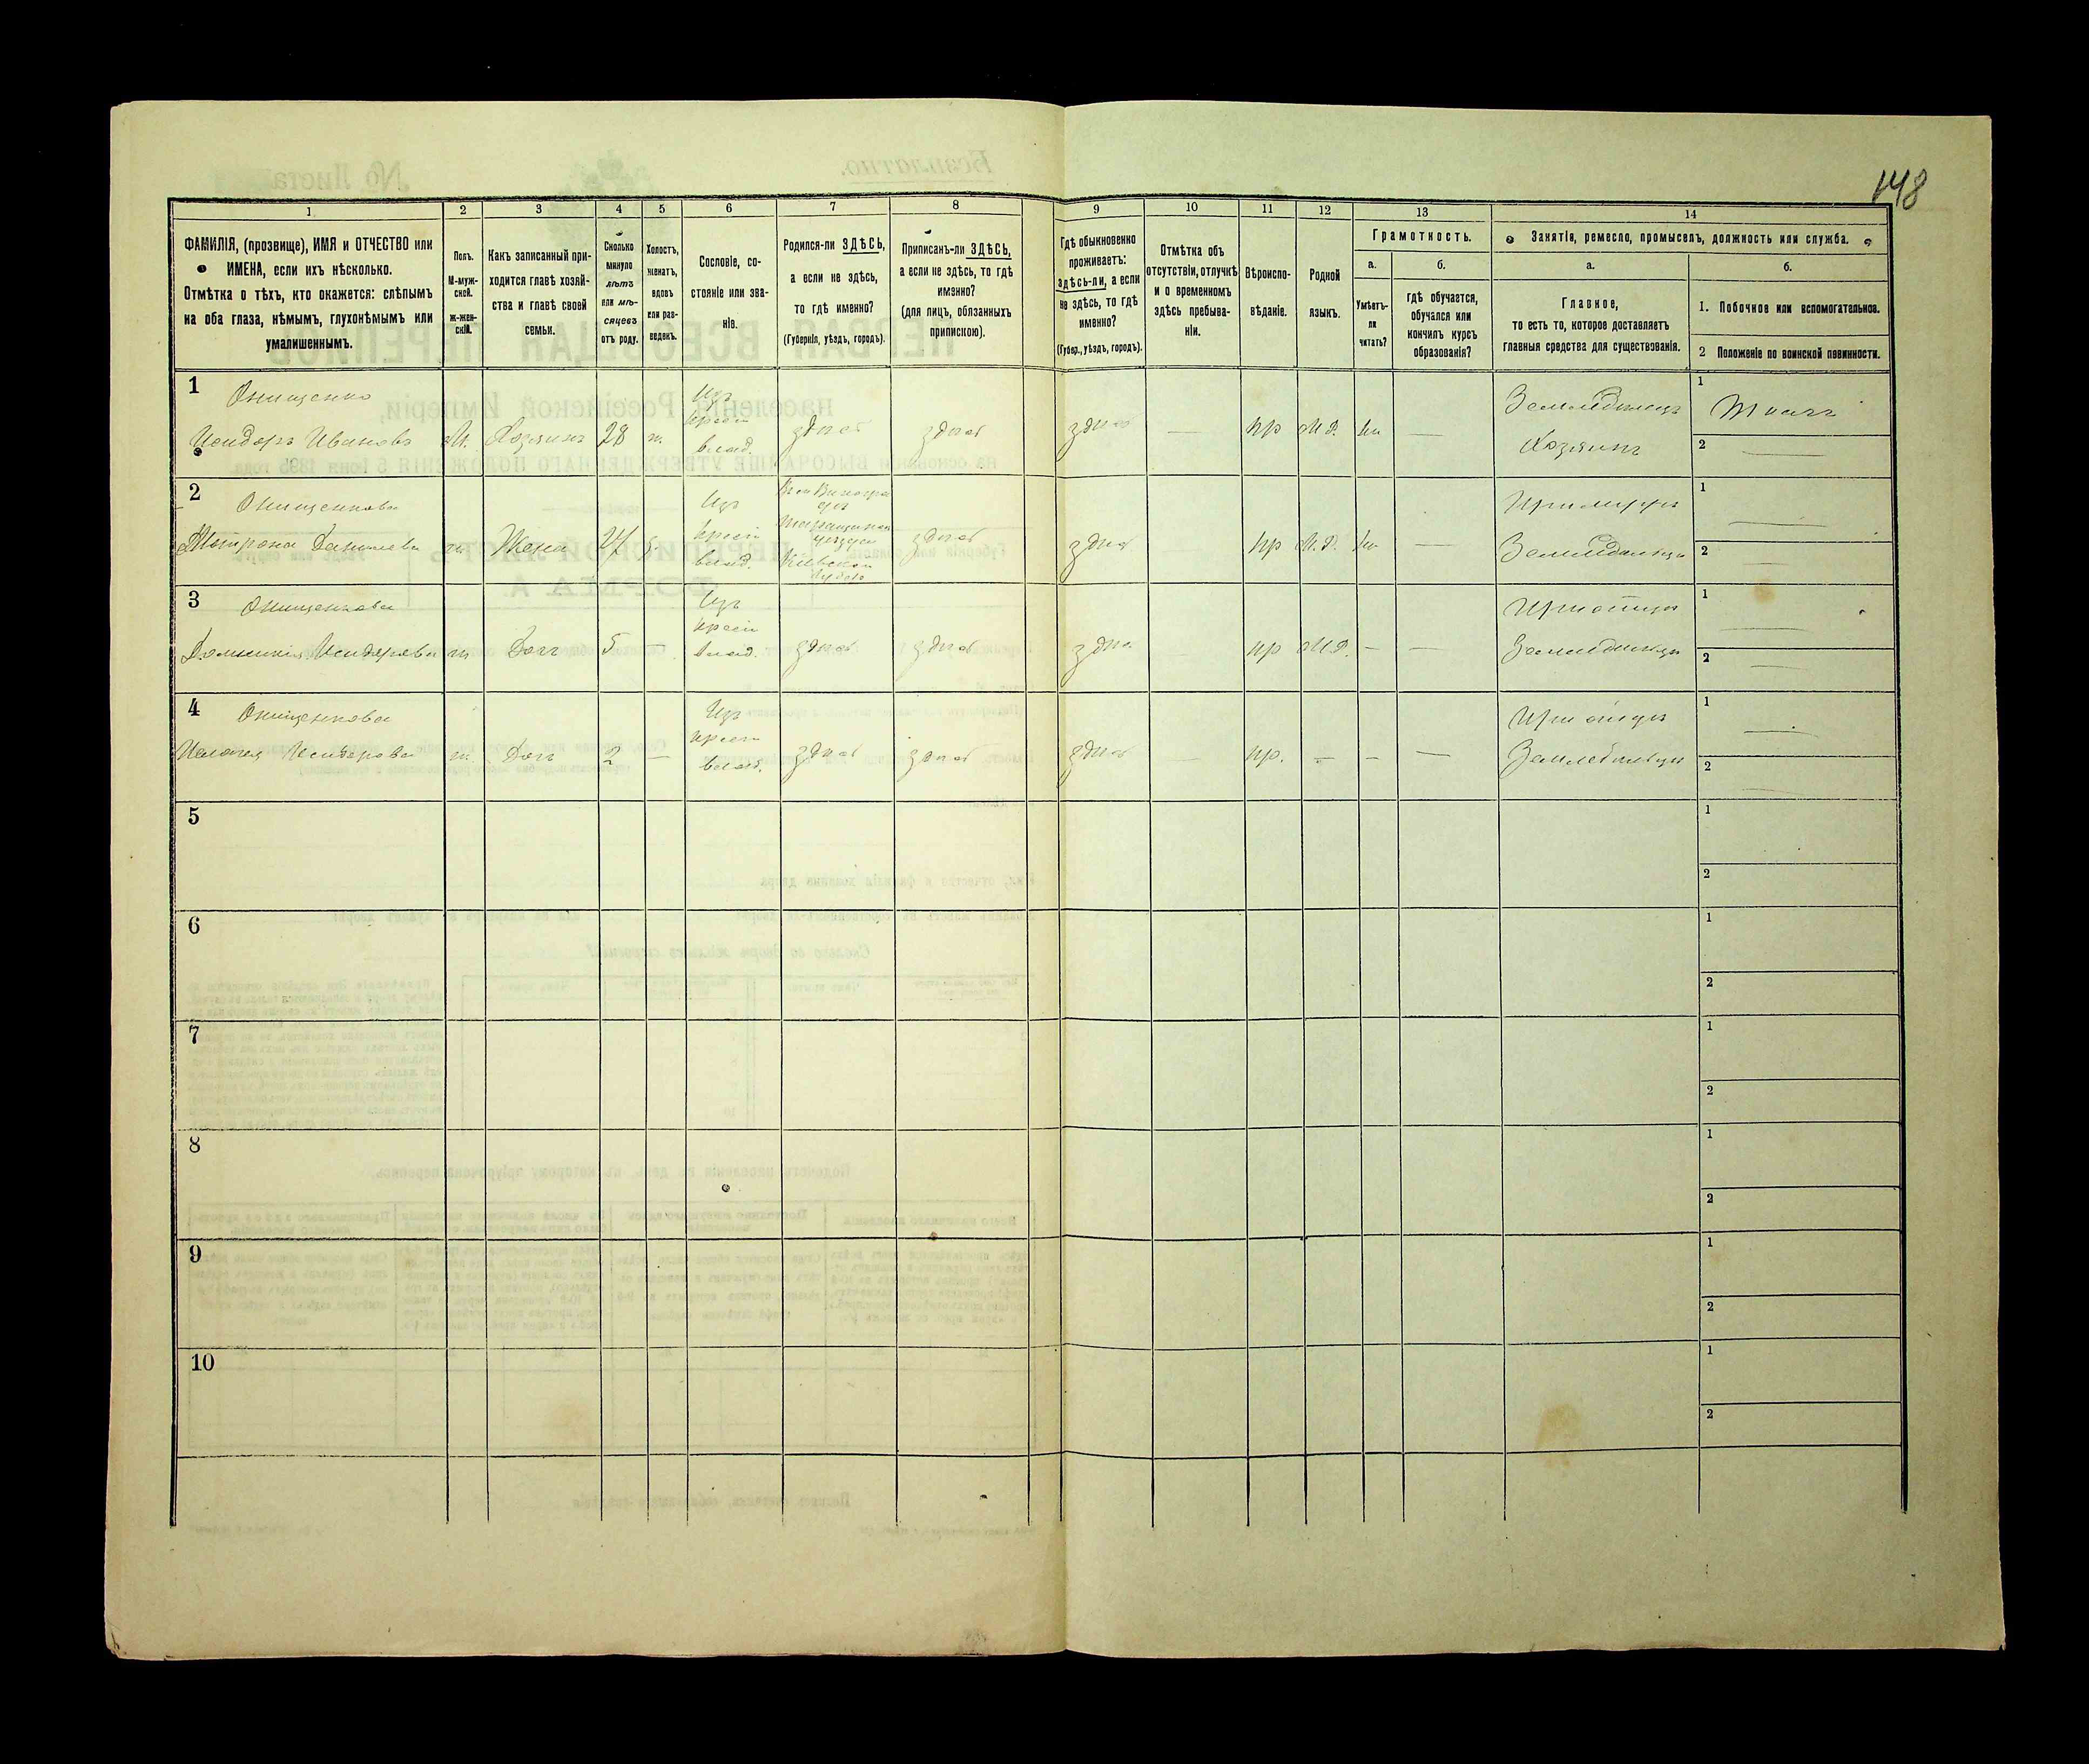 148
1 2 3 4 5 6 7 8 9 10 11 12 13 14
ФАМИЛІЯ, (прозвище), ИМЯ и ОТЧЕСТВО или
ИМЕНА, если ихъ нѣсколько.
Отмѣтка о тѣхъ, кто окажется: слѣпымъ
на оба глаза, нѣмымъ, глухонѣмымъ или
умалишеннымъ.
Полъ.
М-муж-
ской.
ж-жен-
скій.
Какъ записанный при-
ходится главѣ хозяй-
ства и главѣ своей
семьи.
Сколько
минуло
лѣтъ
или мѣ-
сяцевъ
отъ роду.
Холостъ,
женатъ,
вдовъ
или раз-
веденъ.
Сословіе, со-
стояніе или зва-
ніе.
Родился-ли ЗДѢСЬ,
а если не здѣсь,
то гдѣ именно?
(Губернія, уѣздъ, городъ).
Приписанъ-ли ЗДѢСЬ,
а если не здѣсь, то гдѣ
именно?
(для лицъ, обязанныхъ
припискою).
Гдѣ обыкновенно
проживаетъ:
здѣсь-ли, а если
не здѣсь, то гдѣ
именно?
(Губер., уѣздъ, городъ).
Отмѣтка объ
отсутствіи, отлучкѣ
и о временномъ
здѣсь пребыва-
ніи.
Вѣроиспо-
вѣданіе.
Родной
языкъ.
Грамотность.
а.
Умѣетъ-
ли
читать?
б.
гдѣ обучается,
обучался или
кончилъ курсъ
образованія?
Занятія, ремесло, промыселъ, должность или служба.
а.
Главное,
то есть то, которое доставляетъ
главныя средства для существованія.
б.
1. Побочное или вспомогательное.
2 Положеніе по воинской повинности.
1 Онищенко Изъ крест. Земледѣлецъ 1 Ткачъ
Исидоръ Ивановъ М. Хозяинъ 28 ж. влад. здѣсь здѣсь здѣсь — пр М.Р. — Хозяинъ 2 —
2 Онищенкова Изъ При мужѣ 1 —
Данилева ж Жена 24 крест. влад. Таращанск. уѣзда Кіевской губер. здѣсь здѣсь пр М.Р. — Земледѣлица 2 —
3 Онищенкова Изъ крест. При отцѣ 1 —
Домникія Исидорова ж Дочь 5 — влад. здѣсь здѣсь здѣсь пр М.Р. — — Земледѣлица 2 —
4 Онищенкова Изъ крест. При отцѣ 1 —
Исидорова ж. Дочь 2 — влад. здѣсь здѣсь здѣсь пр. — — — Земледѣлица 2 —
5 1
2
6 1
2
7 1
2
8 1
2
9 1
2
10 1
2